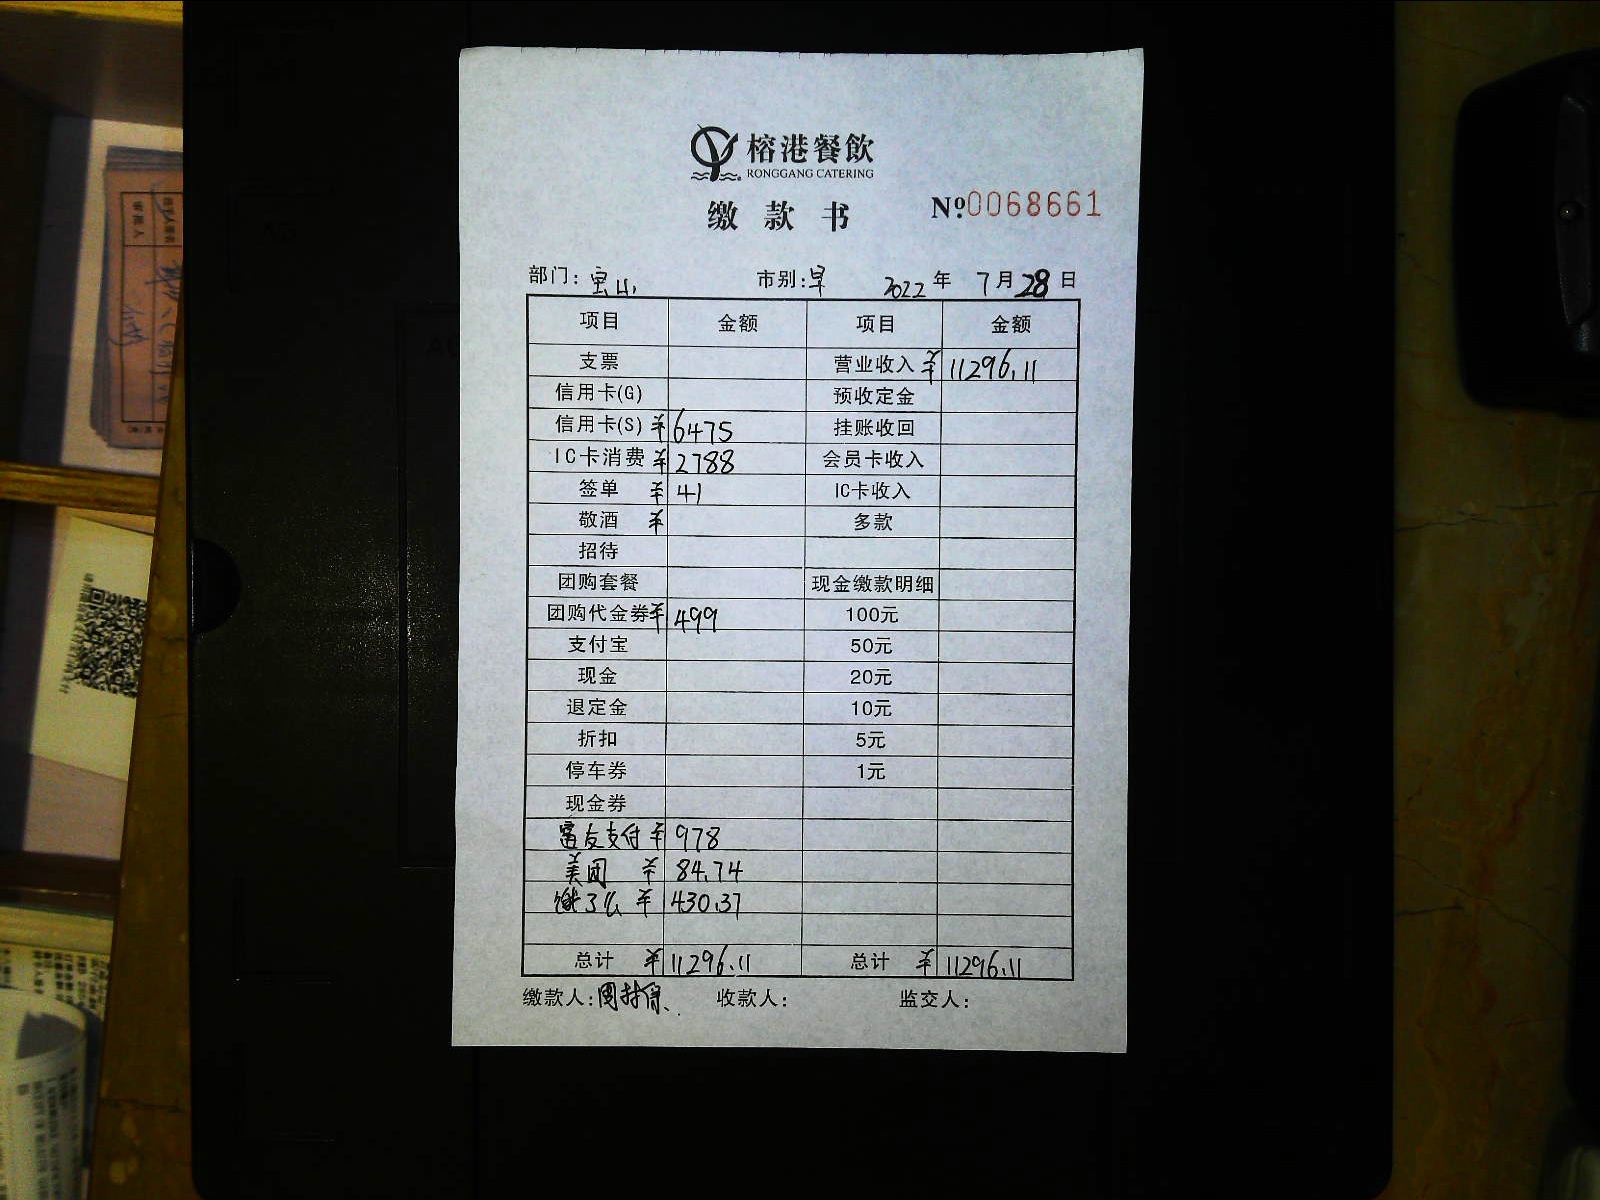 榕港餐飲
RONGGANG CATERING
缴款书 №0068661
部门: 宝山 市别: 早 2022年 7月 28日
项目 金额 项目 金额
支票 营业收入 ¥ 11296.11
信用卡(G) 预收定金
信用卡(S) ¥ 6475 挂账收回
IC卡消费 ¥ 2788 会员卡收入
签单 ¥ 41 IC卡收入
敬酒 ¥ 多款
招待
团购套餐 现金缴款明细
团购代金券 ¥ 499 100元
支付宝 50元
现金 20元
退定金 10元
折扣 5元
停车券 1元
现金券
富友支付 ¥ 978
美团 ¥ 84.74
饿了么 ¥ 430.37
总计 ¥ 11296.11 总计 ¥ 11296.11
缴款人: 收款人: 监交人: